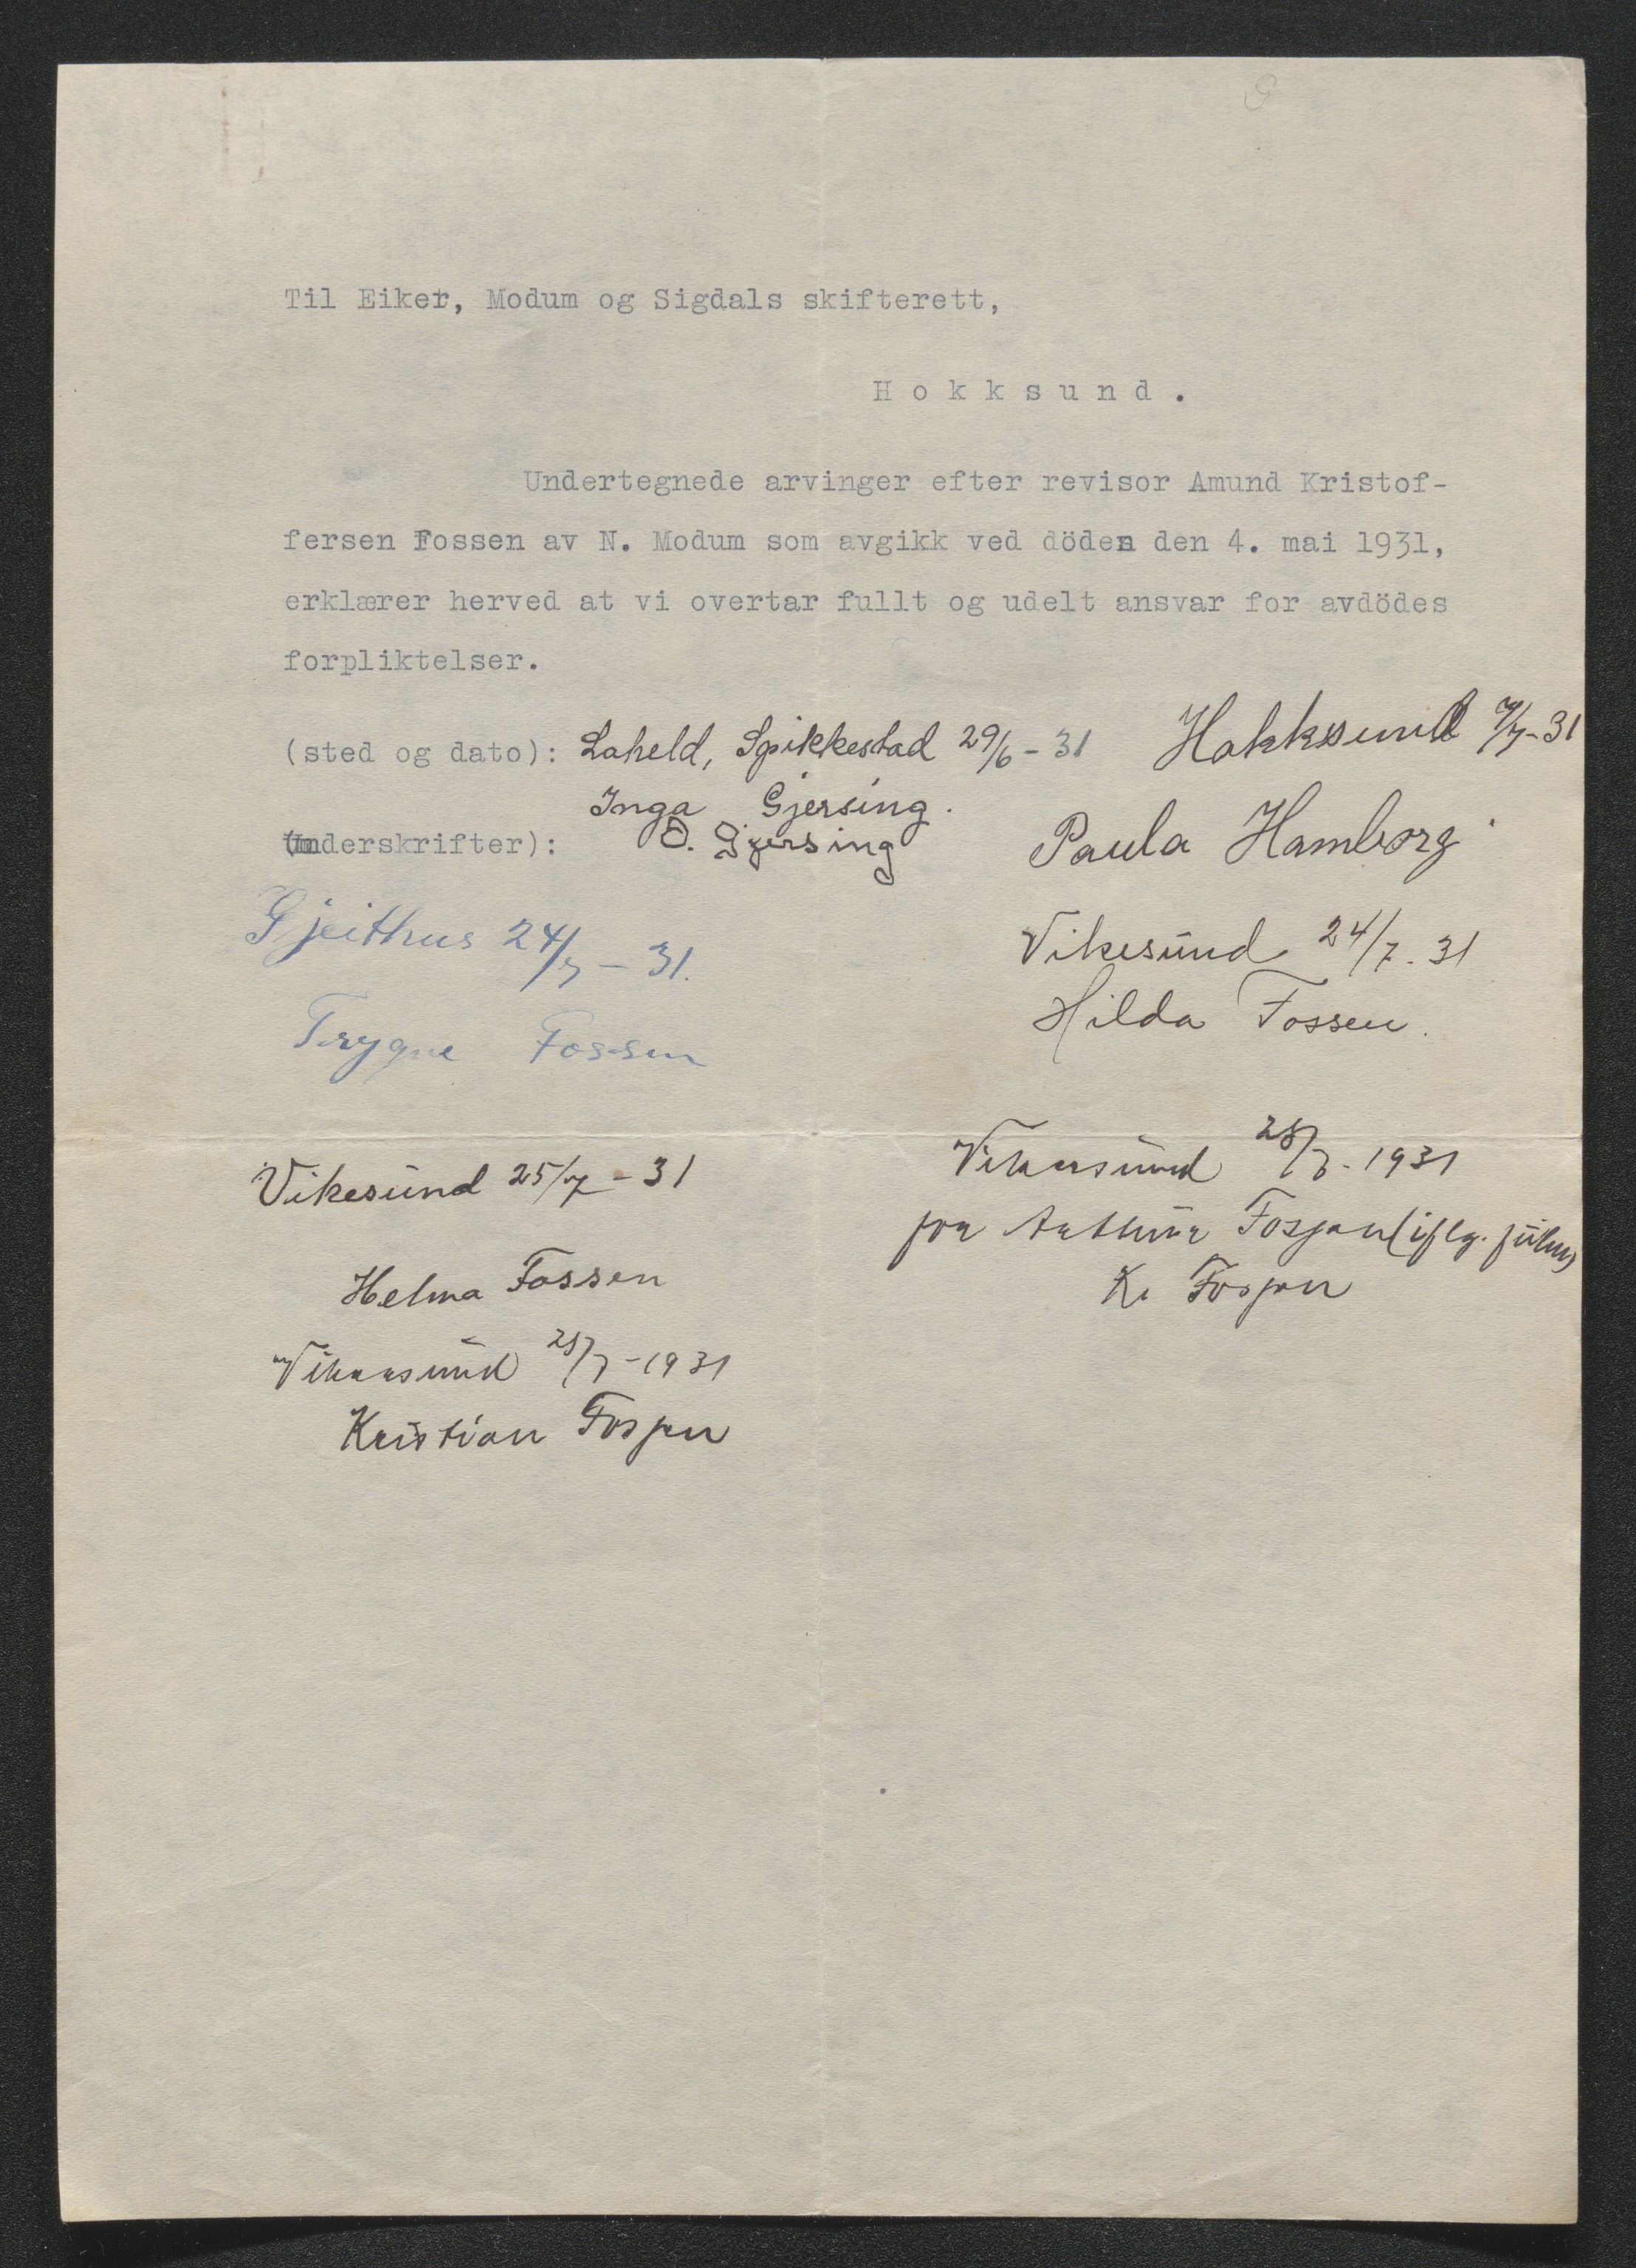 Til Eiker, Modum og Sigdals skifterett,
Hokksund.
Undertegnede arvinger efter revisor Amund Kristof-
fersen Fossen av N. Modum som avgikk ved döden den 4. mai 1931,
erklærer herved at vi overtar fullt og udelt ansvar for avdödes
forpliktelser.
(sted og dato): Laheld, Spikkestad 29/6 - 31
Inga Gjersing.
(underskrifter): O. Gjersing
Hokksund 7/7-31
Paula Hamborg
Gjeithus 24/7 - 31.
Trygve Fossen
Vikesund 24/7. 31
Hilda Fossen.
Vikesund 25/7 - 31
Helma Fossen
Vikersund 28/7 - 1931
for Fossen (iflg. fullm)
K. Fossen
Vikersund 28/7 - 1931
Kristian Fossen